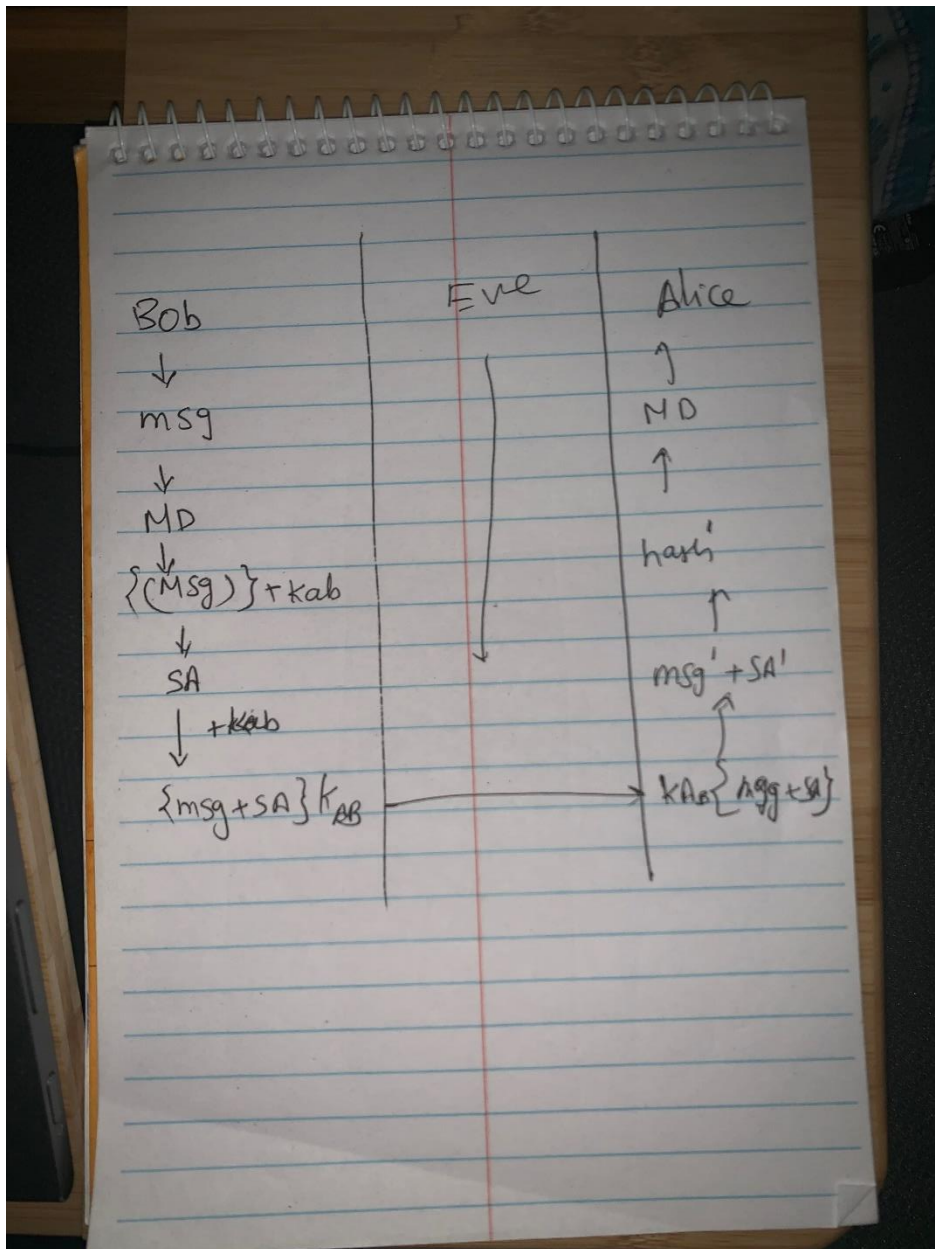 Bob
↓
msg
↓
MD
↓
{(Msg)} + kab
↓
SA
↓ + kab
{msg + SA} K_AB
Eve
↓
→
Alice
↑
MD
↑
hash'
↑
msg' + SA'
↑
KAB{msg + SA}